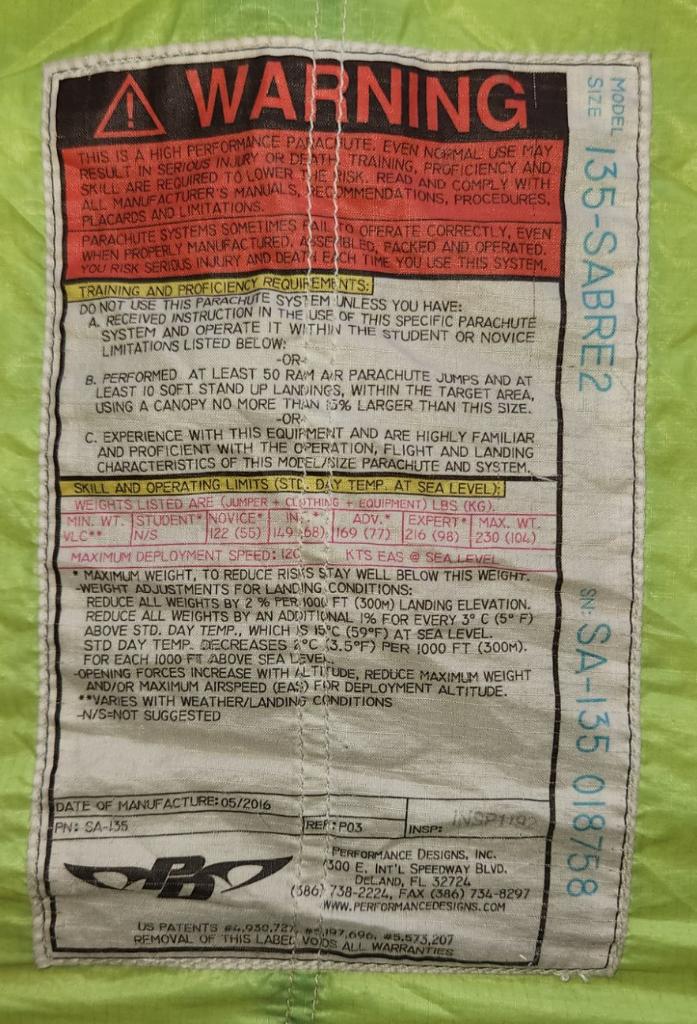 WARNING
THIS IS A HIGH PERFORMANCE PARACHUTE. EVEN NORMAL USE MAY
RESULT IN SERIOUS INJURY OR DEATH. TRAINING, PROFICIENCY AND
SKILL ARE REQUIRED TO LOWER THE RISK. READ AND COMPLY WITH
ALL MANUFACTURER'S MANUALS, RECOMMENDATIONS, PROCEDURES,
PLACARDS AND LIMITATIONS.
PARACHUTE SYSTEMS SOMETIMES FAIL TO OPERATE CORRECTLY, EVEN
WHEN PROPERLY MANUFACTURED, ASSEMBLED, PACKED AND OPERATED.
YOU RISK SERIOUS INJURY AND DEATH EACH TIME YOU USE THIS SYSTEM.
TRAINING AND PROFICIENCY REQUIREMENTS:
DO NOT USE THIS PARACHUTE SYSTEM UNLESS YOU HAVE:
A. RECEIVED INSTRUCTION IN THE USE OF THIS SPECIFIC PARACHUTE
SYSTEM AND OPERATE IT WITHIN THE STUDENT OR NOVICE
LIMITATIONS LISTED BELOW:
-OR-
B. PERFORMED AT LEAST 50 RAM AIR PARACHUTE JUMPS AND AT
LEAST 10 SOFT STAND UP LANDINGS, WITHIN THE TARGET AREA,
USING A CANOPY NO MORE THAN 15% LARGER THAN THIS SIZE.
-OR-
C. EXPERIENCE WITH THIS EQUIPMENT AND ARE HIGHLY FAMILIAR
AND PROFICIENT WITH THE OPERATION, FLIGHT AND LANDING
CHARACTERISTICS OF THIS MODEL/SIZE PARACHUTE AND SYSTEM.
SKILL AND OPERATING LIMITS (STD. DAY TEMP. AT SEA LEVEL):
WEIGHTS LISTED ARE (JUMPER + CLOTHING + EQUIPMENT) LBS (KG).
MIN. WT. STUDENT* NOVICE* INT.* ADV.* EXPERT* MAX. WT.
VLC** N/S 122 (55) 149 (68) 169 (77) 216 (98) 230 (104)
MAXIMUM DEPLOYMENT SPEED: 120 KTS EAS @ SEA LEVEL
* MAXIMUM WEIGHT, TO REDUCE RISKS STAY WELL BELOW THIS WEIGHT.
-WEIGHT ADJUSTMENTS FOR LANDING CONDITIONS:
REDUCE ALL WEIGHTS BY 2 % PER 1000 FT (300M) LANDING ELEVATION.
REDUCE ALL WEIGHTS BY AN ADDITIONAL 1% FOR EVERY 3° C (5° F)
ABOVE STD. DAY TEMP., WHICH IS 15°C (59°F) AT SEA LEVEL.
STD DAY TEMP. DECREASES 2°C (3.5°F) PER 1000 FT (300M).
FOR EACH 1000 FT ABOVE SEA LEVEL.
-OPENING FORCES INCREASE WITH ALTITUDE, REDUCE MAXIMUM WEIGHT
AND/OR MAXIMUM AIRSPEED (EAS) FOR DEPLOYMENT ALTITUDE.
**VARIES WITH WEATHER/LANDING CONDITIONS
-N/S=NOT SUGGESTED
DATE OF MANUFACTURE: 05/2016
PN: SA-135 REF: P03 INSP: INSP1192
PD
PERFORMANCE DESIGNS, INC.
1300 E. INT'L SPEEDWAY BLVD.
DELAND, FL 32724
(386) 738-2224, FAX (386) 734-8297
WWW.PERFORMANCEDESIGNS.COM
US PATENTS #4,930,727, #5,197,696, #5,573,207
REMOVAL OF THIS LABEL VOIDS ALL WARRANTIES
MODEL
SIZE 135-SABRE2
SN: SA-135 018758